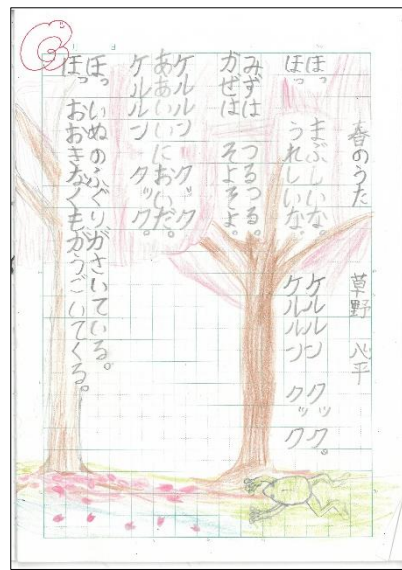 春のうた　草野　心平
ほっ　まぶしいな。
ほっ　うれしいな。
みずは　つるつる。
かぜは　そよそよ。
ケルルン　クック。
ああいいにおいだ。
ケルルン　クック。
ほっ　いぬのふぐりがさいている。
ほっ　おおきなくもがうごいてくる。
ケルルン　クック。
ケルルン　クック